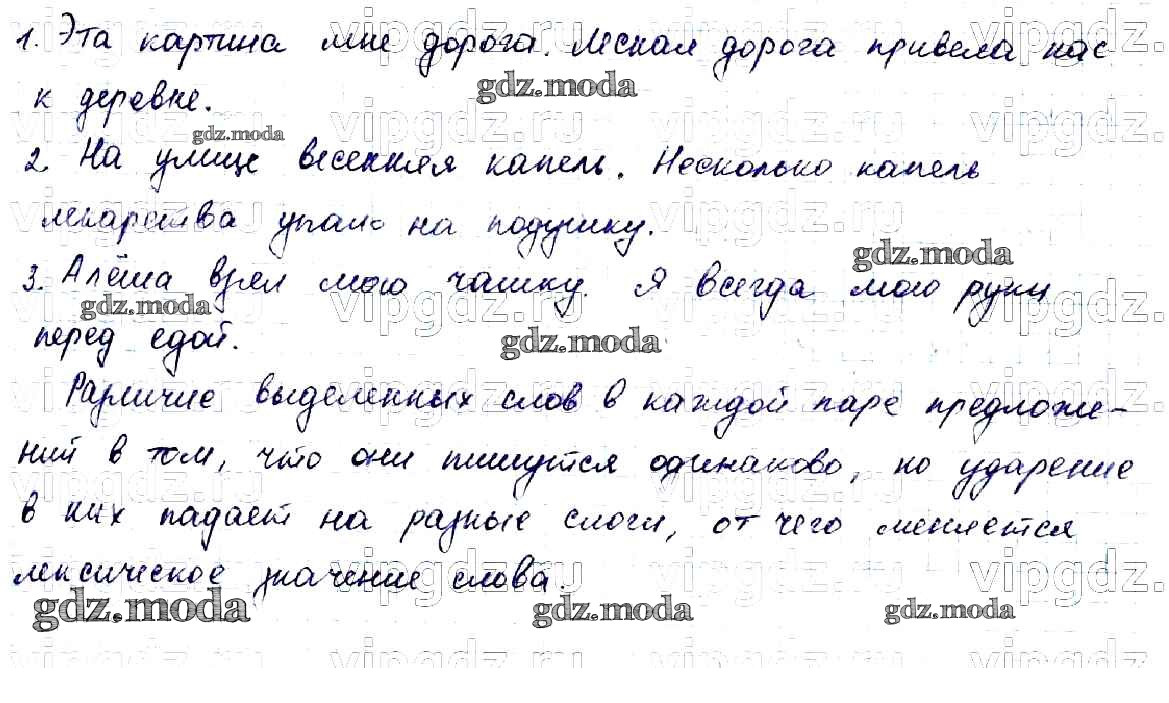 1. Эта картина мне дорога. Лесная дорога привела нас
к деревне.
2. На улице весенняя капель. Несколько капель
лекарства упало на подушку.
3. Алёша взял мою чашку. Я всегда мою руки
перед едой.
Различие выделенных слов в каждой паре предложе-
ний в том, что они пишутся одинаково, но ударение
в них падает на разные слоги, от чего меняется
лексическое значение слова.
gdz.moda
vipgdz.ru